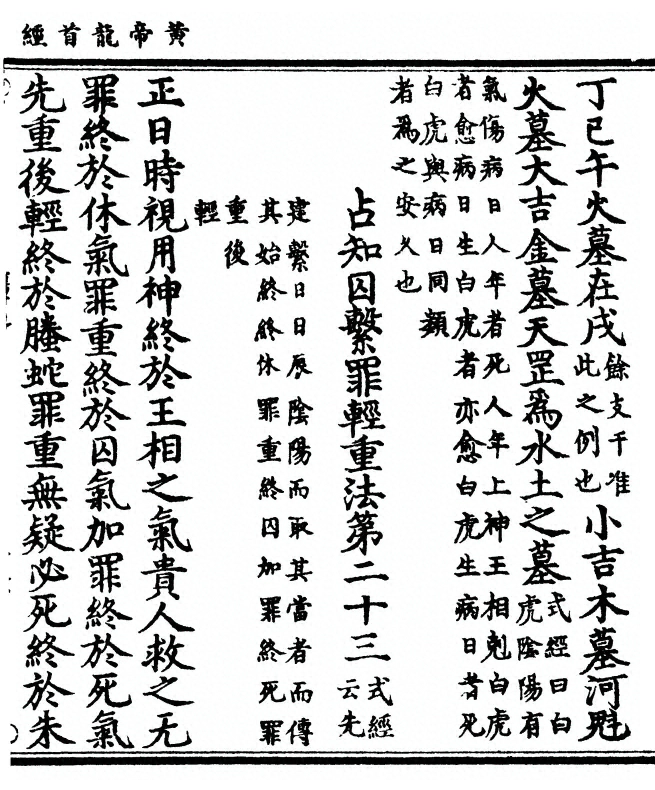 黄帝龍首經
丁巳午火墓在戌餘支干准此之例也小吉木墓河魁
火墓大吉金墓天罡為水土之墓式經曰白虎陰陽有
氣傷病日人年者死人年上神王相剋白虎
者愈病日生白虎者亦愈白虎生病日者死
白虎與病日同類
者為之安久也
占知囚繫罪輕重法第二十三式經云先
建繫日日辰陰陽而取其當者而傳
其始終終休罪重終囚加罪終死罪
重後
輕
正日時視用神終於王相之氣貴人救之无
罪終於休氣罪重終於囚氣加罪終於死氣
先重後輕終於螣蛇罪重無疑必死終於朱